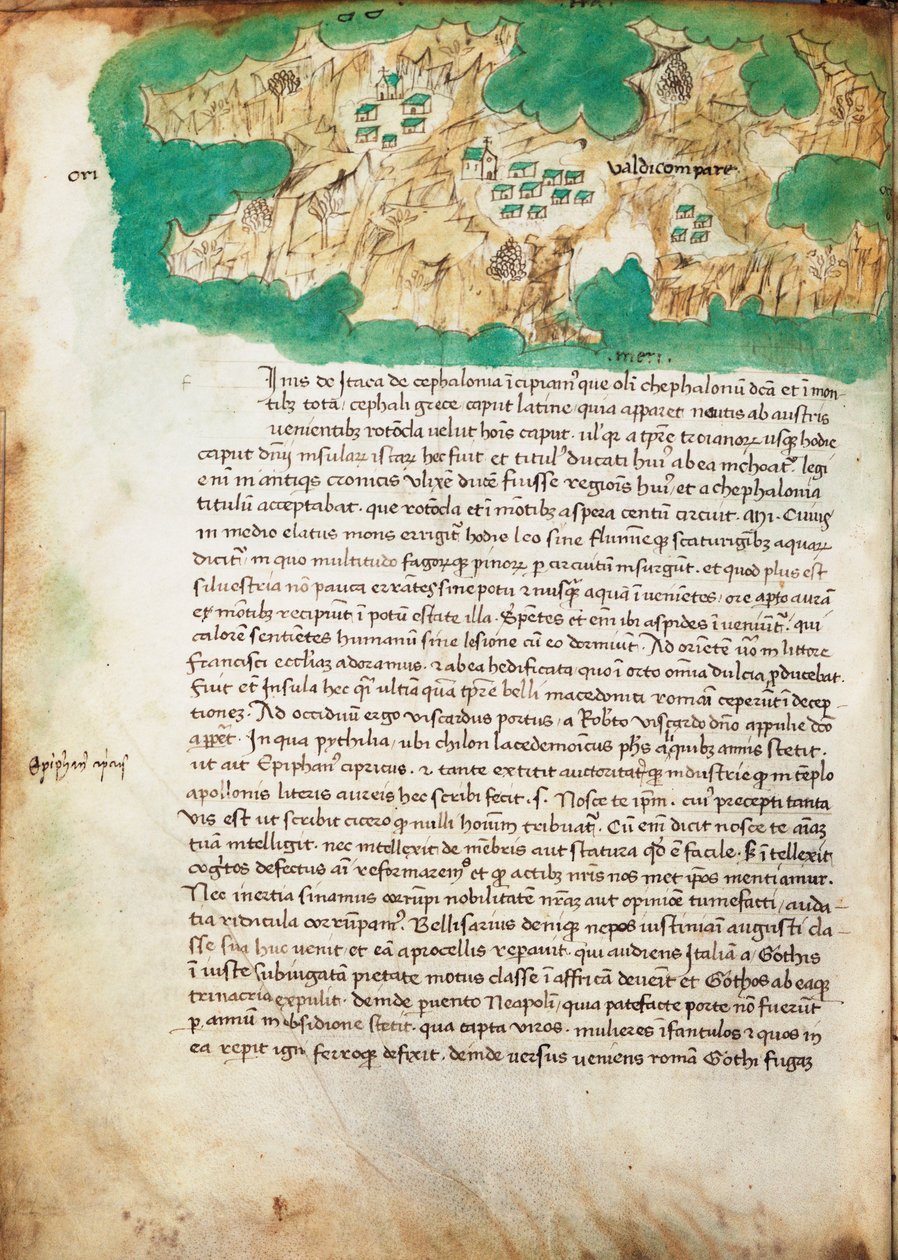 ori
valdicompare
.meri.
Inis de Itaca de cephalonia ĩcipiam⁹ que oli᷃ chephalonũ dc̃a et ĩ mon-
tibꝫ totã cephali grece caput latine quia apparet nautis ab austris
venientibꝫ rotõda velut hoĩs caput . vl' qꝛ a tp̃re troianoꝝ usqꝫ hodie
caput dñij insulaꝝ istaꝝ hec fuit et titul⁹ ducati hui⁹ ab ea inchoat᷑ legi
eñi in antiqis cronicis Vlixẽ ducẽ fuisse regiõis hui⁹ et a chephalonia
titulũ acceptabat . que rotõda et ĩ mõtibꝫ aspera centũ circuit . Mi . Cuius
in medio elatus mons errigit᷑ hodie leo sine flumineqꝫ scaturigĩbꝫ aquaꝝ
dicit᷑ , in quo multitudo fagoꝝqꝫ pinoꝝ ꝑ circuitũ insurgũt . et quod plus est
silvestria nõ pauca errãtes sine potu ⁊ nusqꝫ aquã ĩvenietes , ore aꝑto aurã
ex mõtibꝫ recipiũt ĩ potũ estate illa . Sꝑentes et eni᷃ ibi aspides ĩveniũt᷑ . qui
calorẽ sentiẽtes humanũ sine lesione cũ eo dormiũt . Ad oriẽtem ṽo in littore
francisci eccl'iaꝫ adoramus . ⁊ ab ea hedificata , quo ĩ orto om̃ia dulcia ꝓducebat .
Fuit et᷃ Insula hec q̃i ultiã quã tp̃re belli macedonici romãi ceperũt ĩ decep-
tionez . Ad occiduũ ergo viscardus portus , a Rob̃to viscardo dño appulie dc̃o
apꝑet . In qua pythilia , ubi chilon lacedemoĩcus ph̃s aliquibꝫ annis stetit .
ut ait Epiphan⁹ cipricus . ⁊ tante extitit auctoritat᷑qꝫ industrie qꝫ in tẽplo
Epiphan⁹ cipric⁹
apollonis literis aureis hec scribi fecit . s . Nosce te ip̃m . cui⁹ precepti tanta
vis est ut scribit cicero qꝫ nulli hoium tribuat᷑ . Cũ eni᷃ dicit nosce te aĩaꝫ
tuã intelligit . nec intellexit de mẽbris aut statura qđ ẽ facile . S ĩtellexit
cogitos defectus aĩ reformarem⁹ et qꝫ actibꝫ nr̃is nos met ip̃os mentiamur .
Nec inertia sinamus corrũpi nobilitatẽ nr̃aꝫ aut opiniõe tumefacti , auda-
tia ridicula corrũpam᷑ . Bellisarius deniqꝫ nepos iustiniãi augusti cla-
sse sua huc venit , et eã a procellis reꝑavit . qui audiens Italiã a Gothis
ĩiuste subiugatã pietate motus classe ĩ affricã devẽit et Gothos ab eaqꝫ
trinacria expulit . deinde ꝑvento Neapolĩ , quia patefacte porte nõ fuerũt
ꝑ annũ in obsidione stetit . qua capta viros . mulieres ĩfantulos ⁊ quos in
ea reꝑit igni ferroqꝫ defixit . deinde versus veniens romã Gothi fugaꝫ